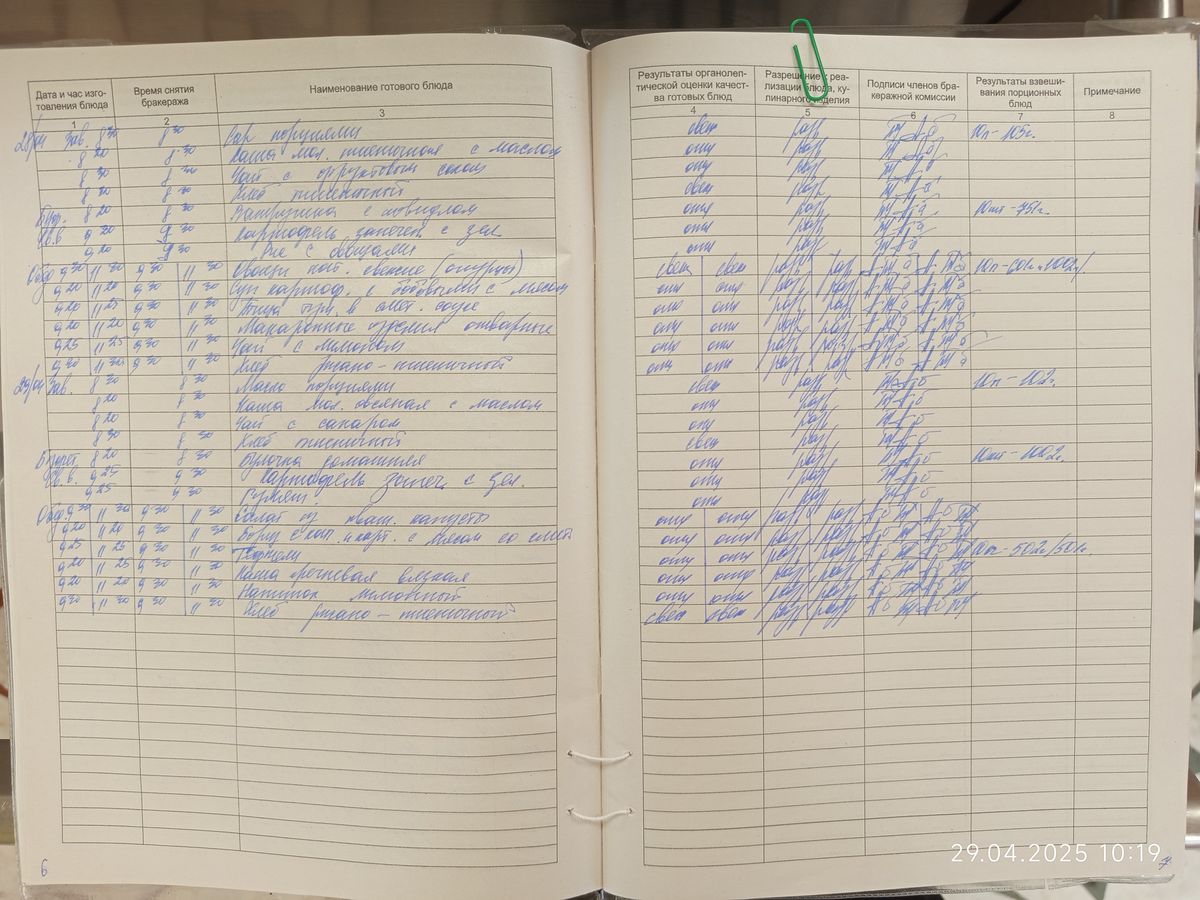 Дата и час изго-
товления блюда
Время снятия
бракеража
Наименование готового блюда
Результаты органолеп-
тической оценки качест-
ва готовых блюд
Разрешение к реа-
лизации блюда, ку-
линарного изделия
Подписи членов бра-
керажной комиссии
Результаты взвеши-
вания порционных
блюд
Примечание
1 2 3 4 5 6 7 8
28/04 Зав. 8 30 8 30 Сыр порциями свеж разр 10п-105г.
8 20 8 30 Каша мол. пшеничная с маслом отл разр
8 30 8 30 Чай с фруктовым соком отл разр
8 20 8 30 Хлеб пшеничный свеж разр
8 20 8 30 Ватрушка с повидлом отл разр 10шт-751г.
9 20 9 30 Картофель запечен с зел отл разр
9 20 9 30 Рис с овощами отл разр
Обед 9 30 11 30 9 30 11 30 Овощи нат. свежие (огурцы) свеж свеж разр разр
9 20 11 20 9 30 11 30 Суп картоф. с бобовыми с мясом отл отл разр разр
9 20 11 25 9 30 11 30 в смет. соусе отл отл разр разр
9 20 11 20 9 30 11 30 Макаронные изделия отварные отл отл разр разр
9 25 11 25 9 30 11 30 Чай с лимоном отл отл разр разр
9 30 11 30 9 30 11 30 Хлеб ржано-пшеничный отл отл разр разр
29/04 Зав. 8 30 8 30 Масло порциями свеж разр 10п-102г.
8 20 8 30 Каша мол. овсяная с маслом отл разр
8 20 8 30 Чай с сахаром отл разр
8 30 8 30 Хлеб пшеничный свеж разр
Буфет 8 20 8 30 Булочка домашняя отл разр
9 25 9 30 Картофель запеч. с зел. отл разр
9 25 9 30 отл разр
Обед. 9 30 11 30 9 30 11 30 Салат из кваш. капусты отл отл разр разр
9 20 11 20 9 30 11 30 Борщ с кап. и карт. с мясом со смет. отл отл разр разр
9 25 11 25 9 30 11 30 Тефтели отл отл разр разр
9 20 11 25 9 30 11 30 Каша гречневая вязкая отл отл разр разр
9 20 11 20 9 30 11 30 Напиток лимонный отл отл разр разр
9 30 11 30 9 30 11 30 Хлеб ржано-пшеничный свеж свеж разр разр
6
7
29.04.2025 10:19